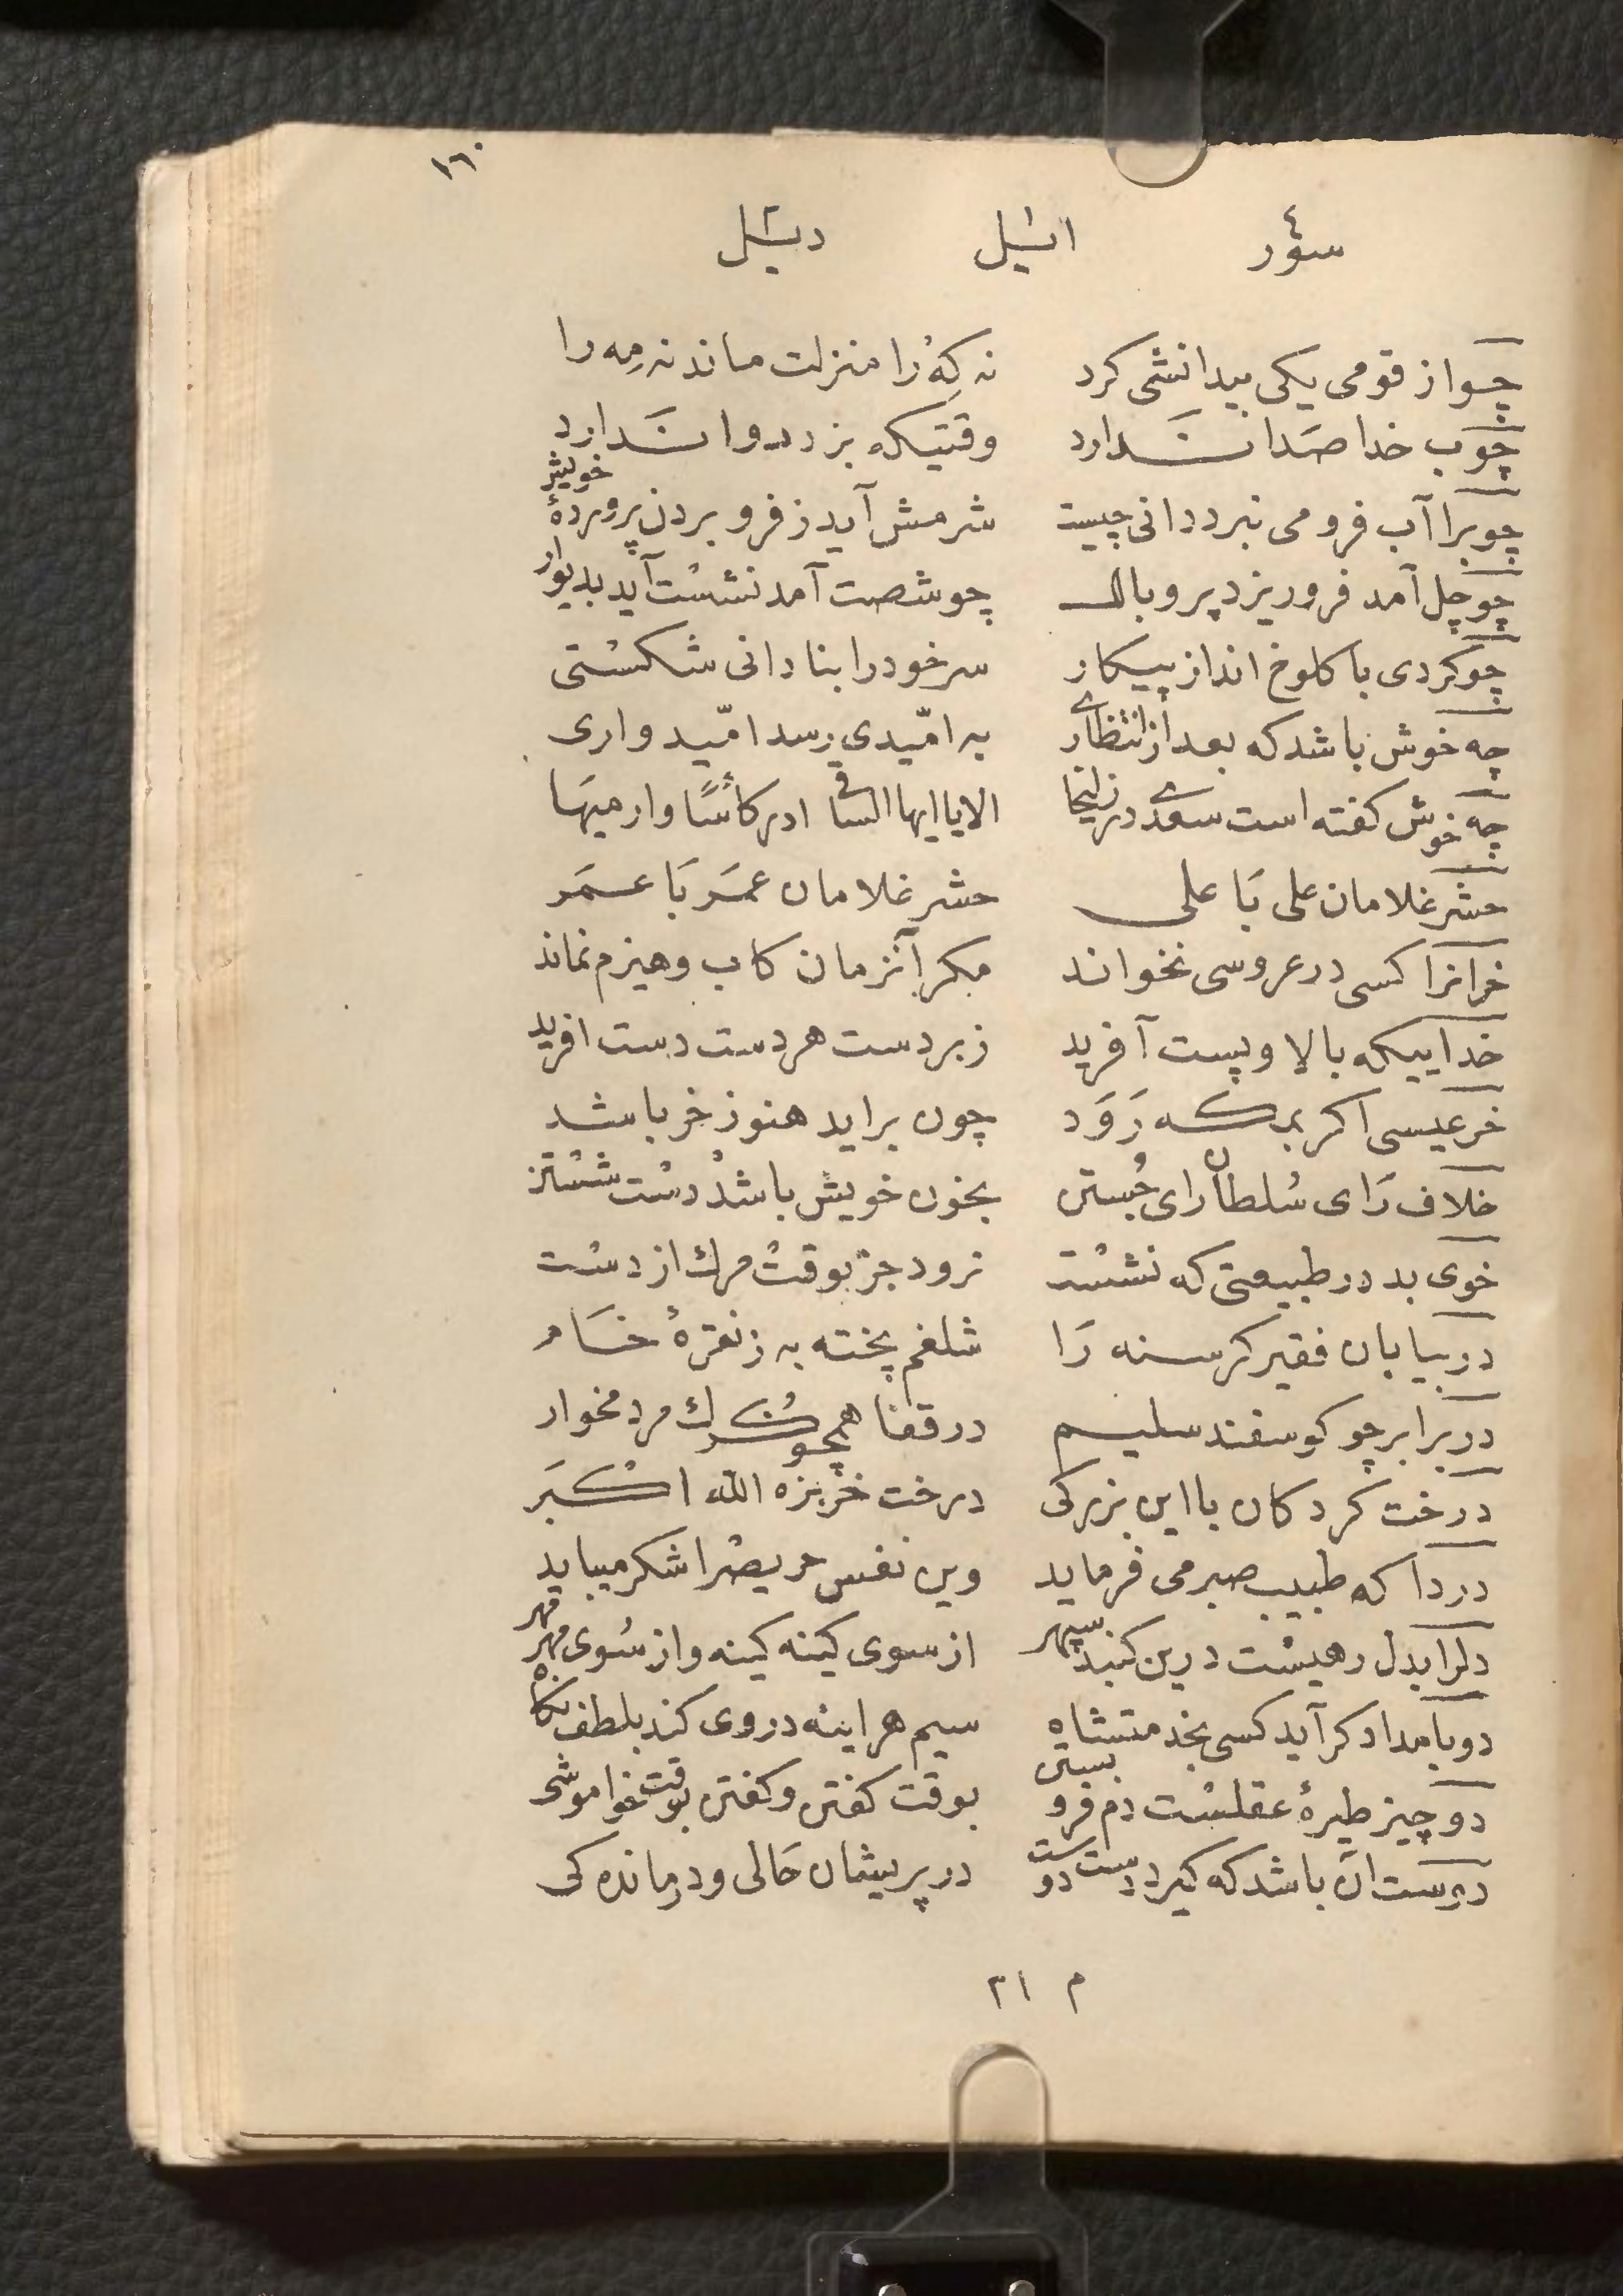 ١٦٠
چو از قومی یکی بیدانشی کرد نه که را منزلت ماند نه مِه را
چوب خدا صَدا نَدارد وقتیکه بزد دوا نَدارد
چوبرا آب فرو می نبرد دانی چیست شرمش آید ز فرو بردن پروردۀ خویش
چو چل آمد فرو ریزد پر و بال چو شصت آمد نشست آید بدیوار
چو کردی با کلوخ انداز پیکار سر خود را بنادانی شکستی
چه خوش باشد که بعد از انتظاری به امّیدی رسد امّیدواری
چه خوش کفته است سعدی در زلیخا الا یا ایها الساقی ادر کأسًا وارمیهَا
حشر غلامان علی بَا علی حشر غلامان عمَر بَا عمَر
خرانرا کسی در عروسی نخواند مکر آنزمان کاب و هیزم نماند
خداییکه بالا و پست آفرید زبردست هر دست دست افرید
خر عیسی اکر بمکه رَوَد چون براید هنوز خر باشد
خلاف رَای سُلطان رای جُستن بخون خویش باشد دست شستن
خوی بد در طبیعتی که نشست نرود جز بوقت مرك از دست
در بیابان فقیر کرسنه رَا شلغم پخته به ز نقرۀ خَام
در برابر چو کوسفند سلیم در قفا همچو کرك مردمخوار
درخت کردکان با این بزرکی درخت خربزه الله اکبَر
دردا که طبیب صبر می فرماید وین نفس حریصرا شکر میباید
دلرا بدل رهیست درین کنبد سپهر از سوی کینه کینه و از سُوی مهر مهر
دو بامداد کر آید کسی بخدمت شاه سیم هراینه در وی کند بلطف نکاه
دو چیز طیرۀ عقلست دم فرو بستن بوقت کفتن و کفتن بوقت خاموشی
دوست آن باشد که کیرد دست دوست در پریشان حَالی و درماندکی
م ٢١